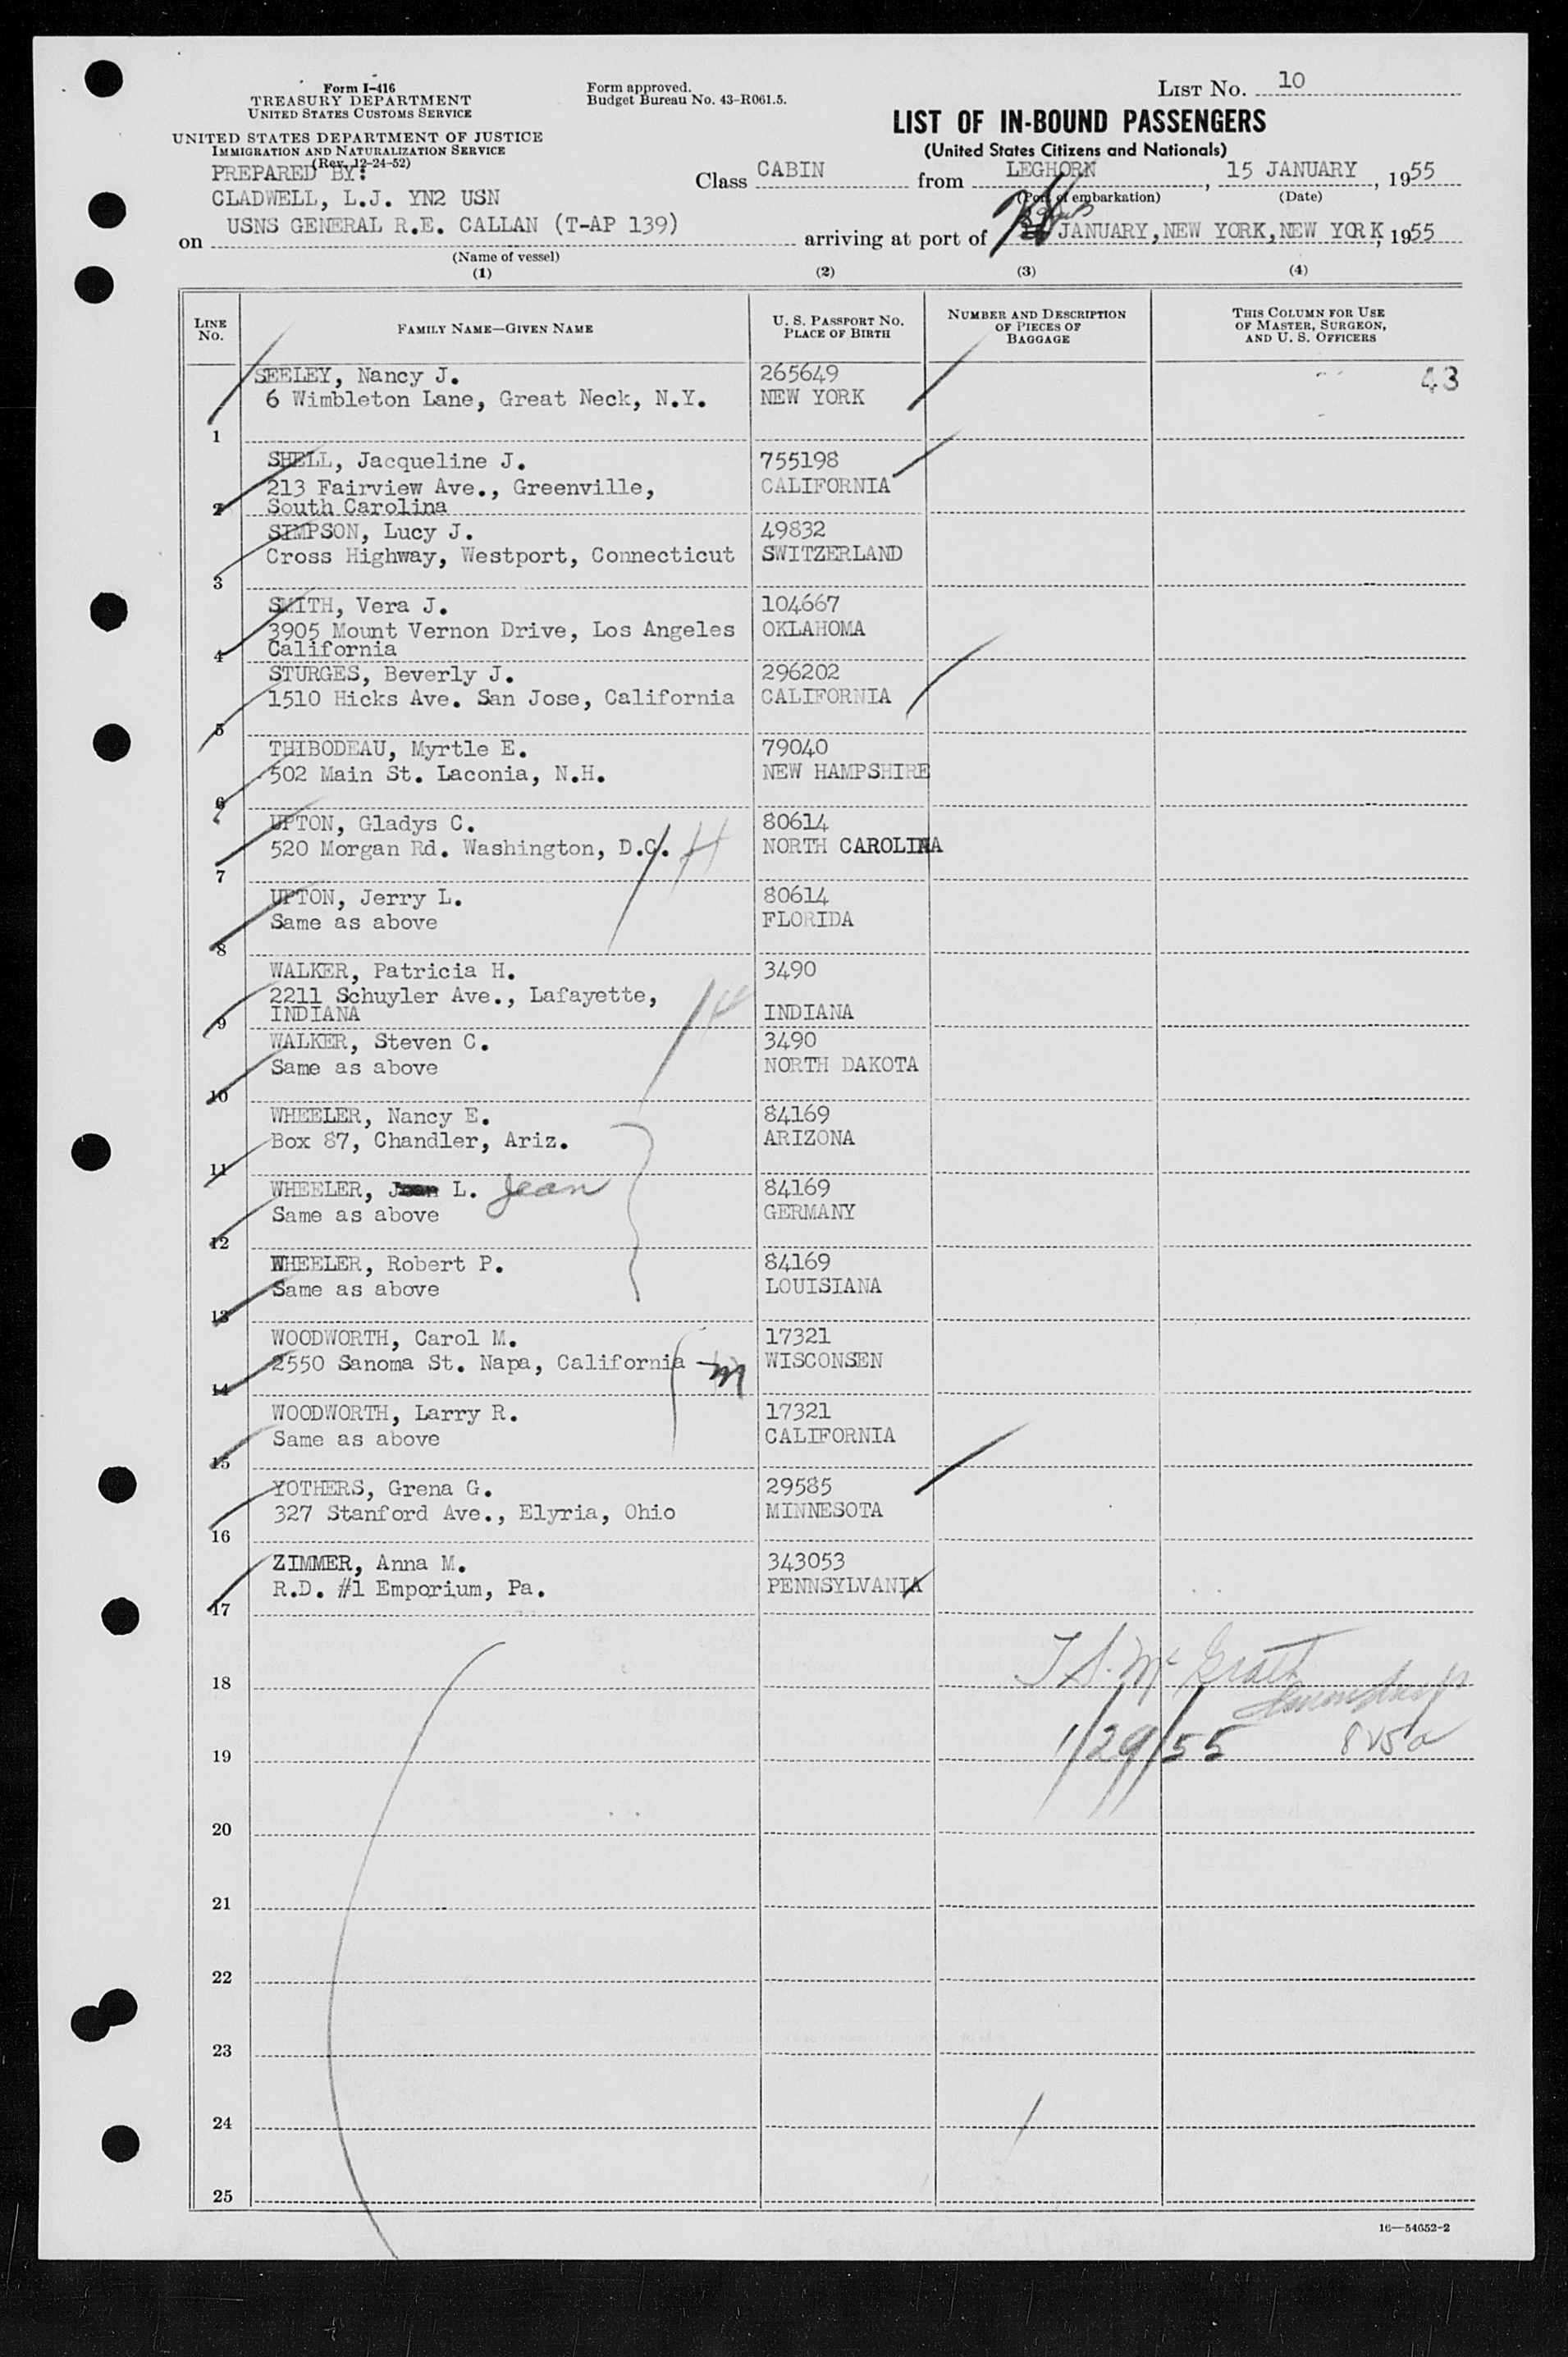 Form I-416
TREASURY DEPARTMENT
UNITED STATES CUSTOMS SERVICE
UNITED STATES DEPARTMENT OF JUSTICE
IMMIGRATION AND NATURALIZATION SERVICE
(Rev. 12-24-52)
PREPARED BY:
CLADWELL, L.J. YN2 USN
Form approved.
Budget Bureau No. 43-R061.5.
LIST NO. 10
LIST OF IN-BOUND PASSENGERS
(United States Citizens and Nationals)
Class CABIN from LEGHORN, 15 JANUARY, 1955
(Port of embarkation) (Date)
on USNS GENERAL R.E. CALLAN (T-AP 139) arriving at port of JANUARY, NEW YORK, NEW YORK, 1955
(Name of vessel)
(1) (2) (3) (4)
LINE NO. FAMILY NAME—GIVEN NAME U. S. PASSPORT NO. PLACE OF BIRTH NUMBER AND DESCRIPTION OF PIECES OF BAGGAGE THIS COLUMN FOR USE OF MASTER, SURGEON, AND U. S. OFFICERS
SEELEY, Nancy J. 265649 43
6 Wimbleton Lane, Great Neck, N.Y. NEW YORK
1
SHELL, Jacqueline J. 755198
213 Fairview Ave., Greenville, CALIFORNIA
2 South Carolina
SIMPSON, Lucy J. 49832
Cross Highway, Westport, Connecticut SWITZERLAND
3
SMITH, Vera J. 104667
3905 Mount Vernon Drive, Los Angeles OKLAHOMA
4 California
STURGES, Beverly J. 296202
1510 Hicks Ave. San Jose, California CALIFORNIA
5
THIBODEAU, Myrtle E. 79040
502 Main St. Laconia, N.H. NEW HAMPSHIRE
6
UPTON, Gladys C. 80614
520 Morgan Rd. Washington, D.C. H NORTH CAROLINA
7
UPTON, Jerry L. 80614
Same as above FLORIDA
8
WALKER, Patricia H. 3490
2211 Schuyler Ave., Lafayette,
9 INDIANA INDIANA
WALKER, Steven C. 3490
Same as above NORTH DAKOTA
10
WHEELER, Nancy E. 84169
Box 87, Chandler, Ariz. ARIZONA
11
WHEELER, L. Jean 84169
Same as above GERMANY
12
WHEELER, Robert P. 84169
Same as above LOUISIANA
13
WOODWORTH, Carol M. 17321
2550 Sanoma St. Napa, California m WISCONSEN
14
WOODWORTH, Larry R. 17321
Same as above CALIFORNIA
15
YOTHERS, Grena G. 29585
327 Stanford Ave., Elyria, Ohio MINNESOTA
16
ZIMMER, Anna M. 343053
R.D. #1 Emporium, Pa. PENNSYLVANIA
17
T.S. McGrath
18
1/29/55 825a
19
20
21
22
23
24
25
16—54652-2